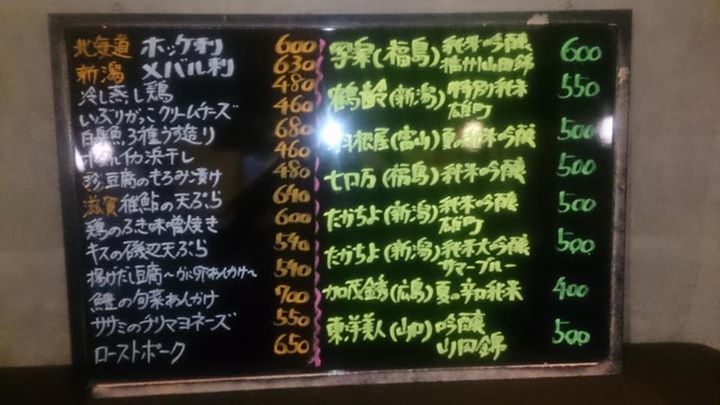 北海道 ホッケ刺 600
新潟 メバル刺 630
冷し蒸し鶏 480
いぶりがっこクリームチーズ 460
白身魚3種うす造り 680
ホタルイカ浜干し 460
珍豆腐のもろみ漬け 480
滋賀 稚鮎の天ぷら 640
鶏のふき味噌焼き 600
キスの磯辺天ぷら 590
揚げだし豆腐〜うに卵あんかけ〜 590
鱧の旬菜あんかけ 700
ササミのチリマヨネーズ 550
ローストポーク 650
写楽(福島)純米吟醸 600
播州山田錦
鶴齢(新潟)特別純米 550
雄町
羽根屋(富山)夏の純米吟醸 500
七ロ万(福島)純米吟醸 500
たかちよ(新潟)純米吟醸 500
雄町
たかちよ(新潟)純米大吟醸 500
サマーブルー
加茂錦(広島)夏の辛口純米 400
東洋美人(山口)吟醸 500
山田錦